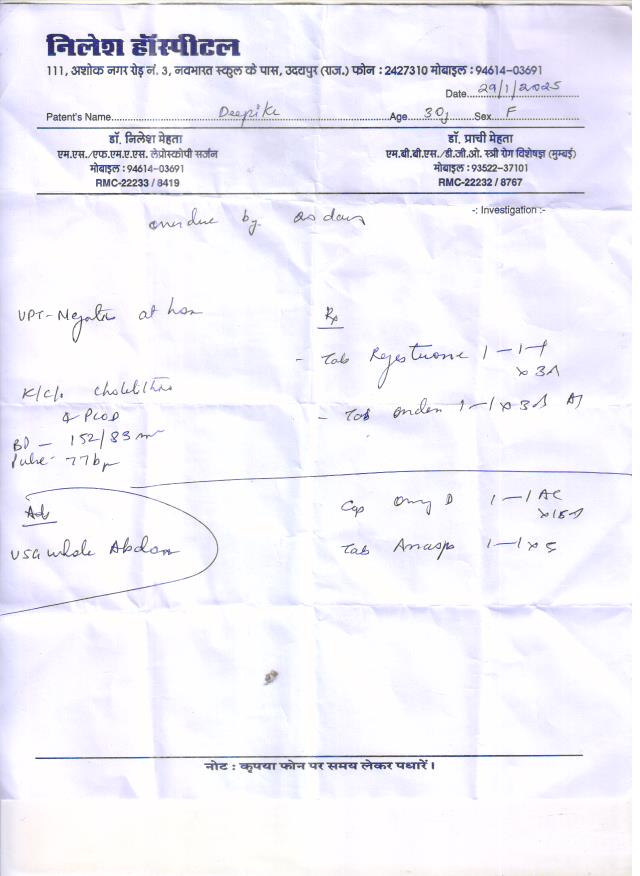 निलेश हॉस्पीटल
111, अशोक नगर रोड़ नं. 3, नवभारत स्कुल के पास, उदयपुर (राज.) फोन : 2427310 मोबाइल : 94614-03691
Date 29/1/2025
Patent's Name Deepika Age 30y Sex F
डॉ. निलेश मेहता
एम.एस./एफ.एम.ए.एस. लेप्रोस्कोपी सर्जन
मोबाइल : 94614-03691
RMC-22233 / 8419
डॉ. प्राची मेहता
एम.बी.बी.एस./डी.जी.ओ. स्त्री रोग विशेषज्ञ (मुम्बई)
मोबाइल : 93522-37101
RMC-22232 / 8767
-: Investigation :-
overdue by days
UPT-Negative at
Rx
- Tab 1-1-1
x 3
K/c/o
& PCOD
- Tab onden 1-1 x 3
BP - 152/83
Pulse - 77
Cap D 1-1 AC
Adv
USG whole Abdomen
Tab 1-1 x 5
नोट : कृपया फोन पर समय लेकर पधारें।